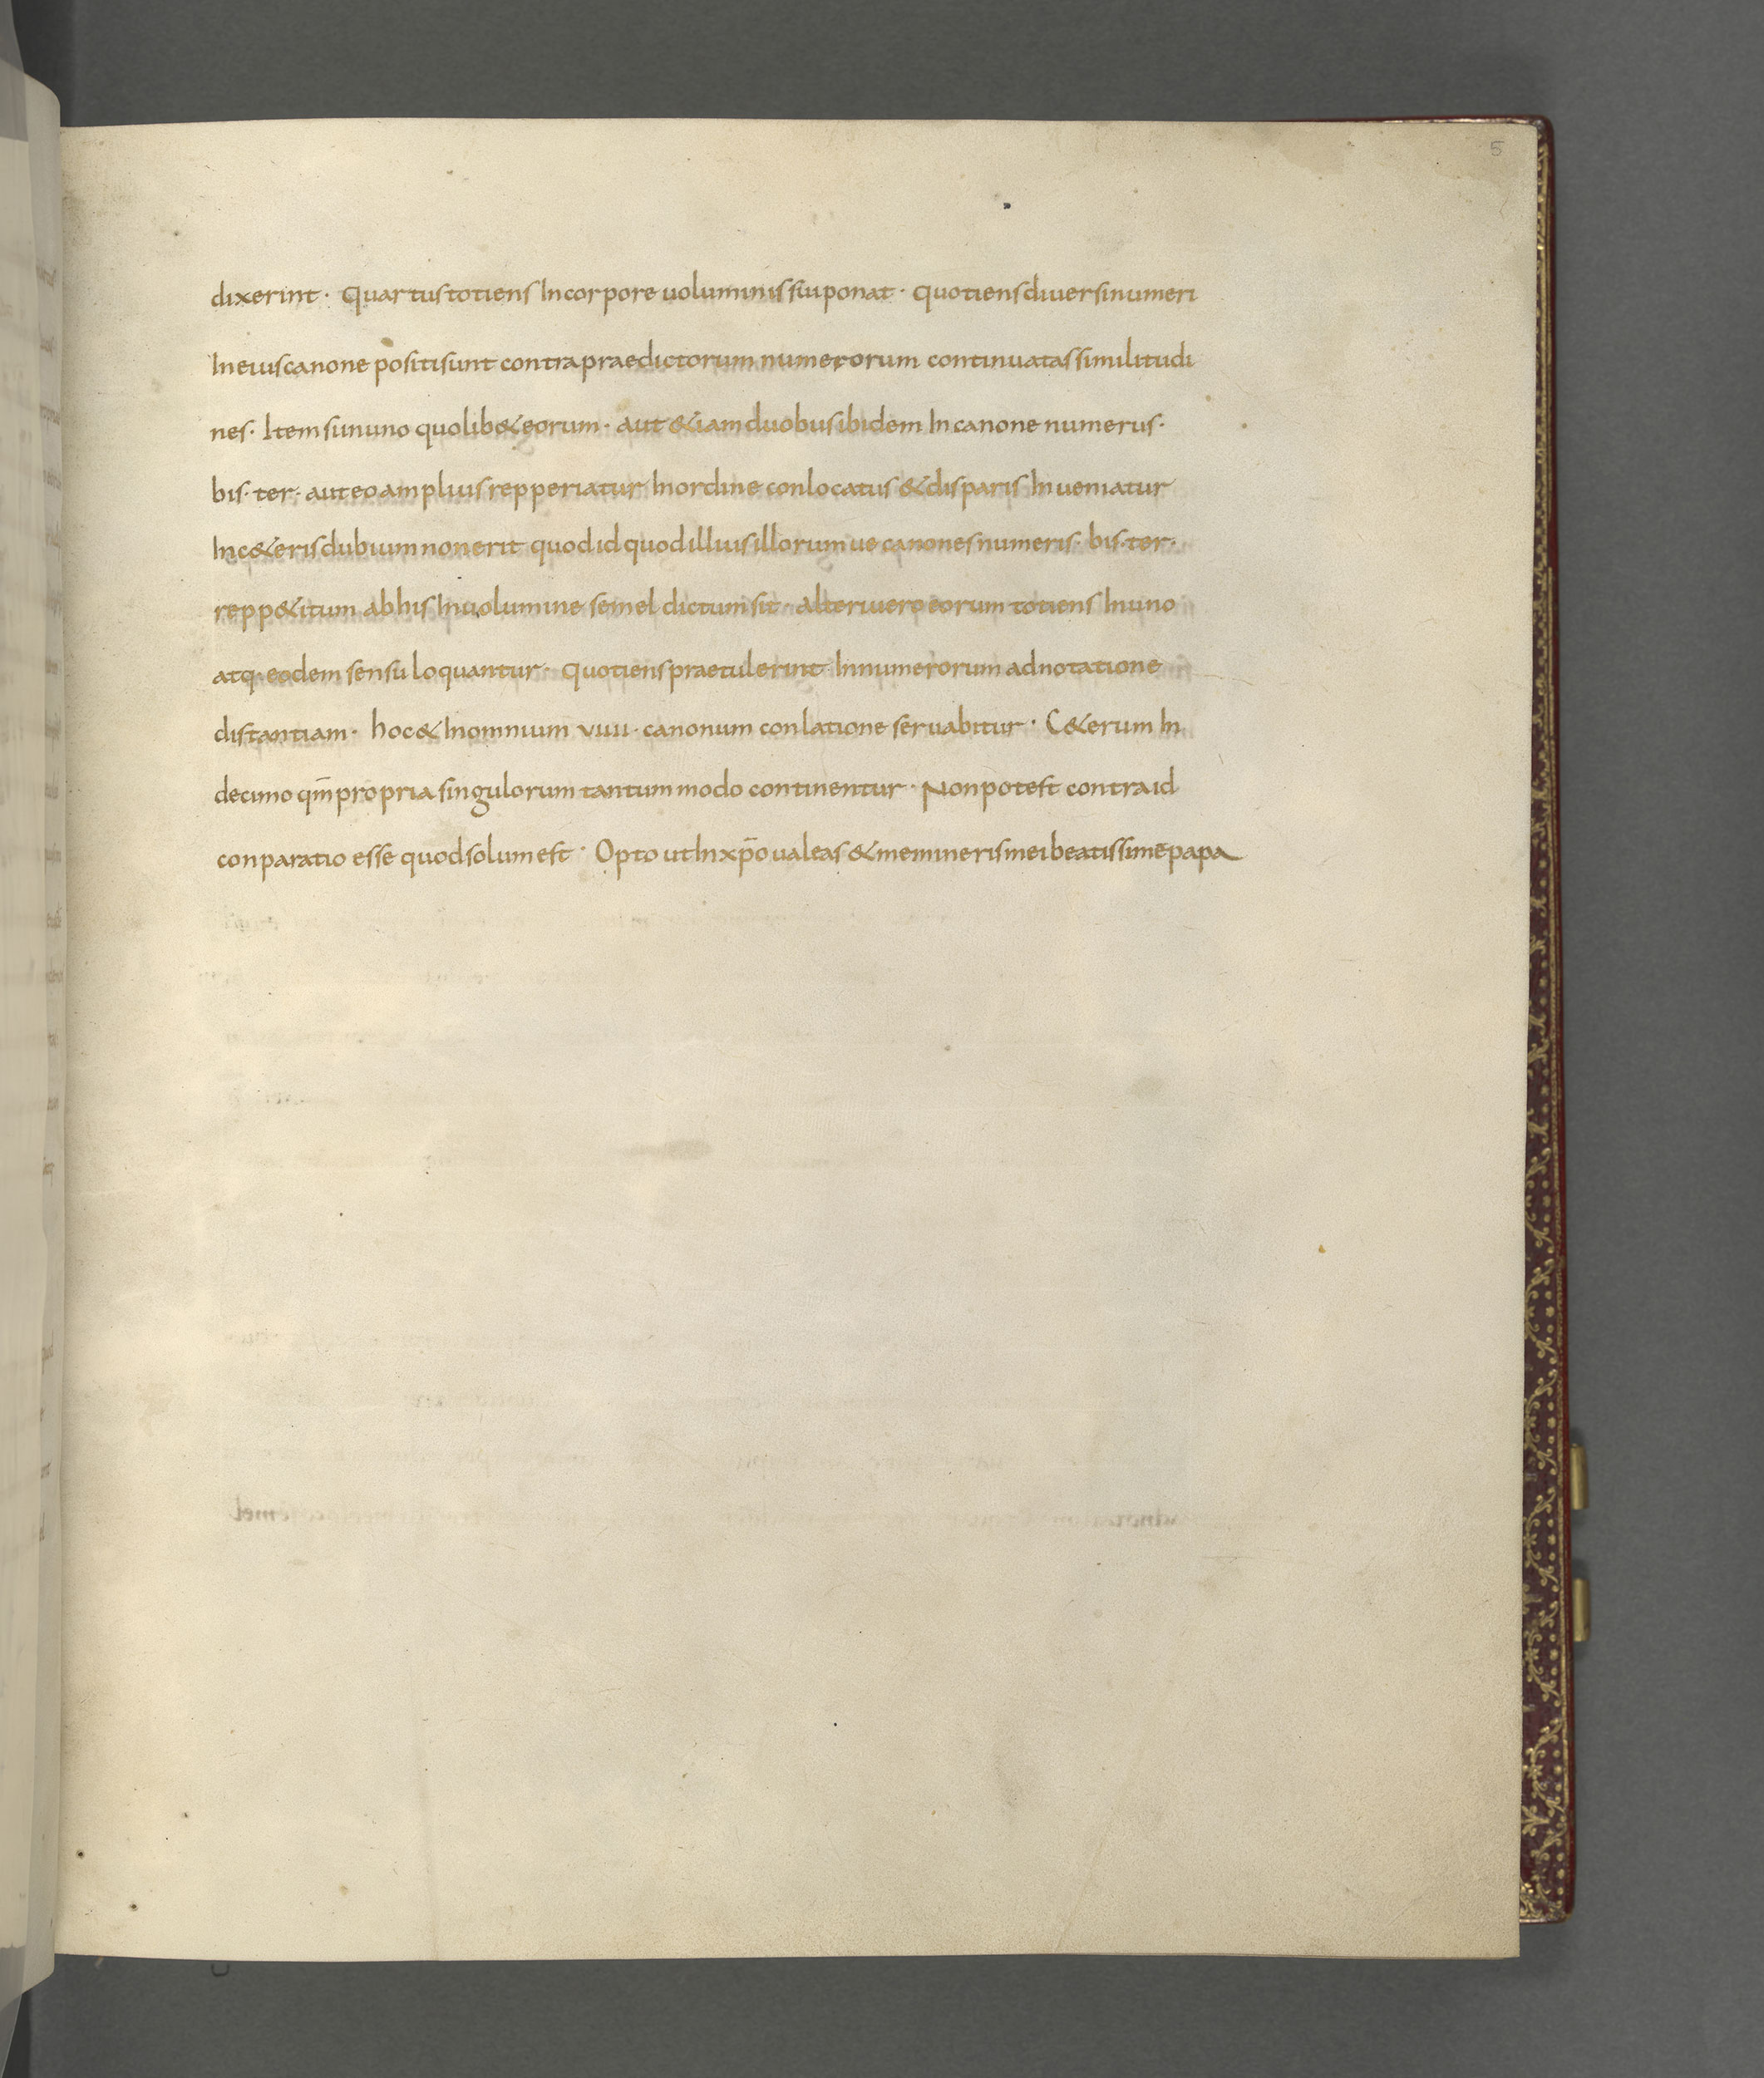 5
dixerint · Quartus totiens In corpore uoluminis sui ponat · quotiens diuersi numeri
In eius canone positi sunt contra praedictorum numerorum continuatas similitudi
nes · Item si in uno quolib& eorum · aut &iam duobus ibidem In canone numerus ·
bis · ter · aut eo amplius repperiatur In ordine conlocatus & disparis Inueniatur
In c&eris dubium non erit quod id quod illius illorumue canones numeris · bis · ter ·
repp&itum ab his In uolumine semel dictum sit · alteri uero eorum totiens In uno
atq· eodem sensu loquantur · Quotiens praetulerint In numerorum adnotatione
distantiam · hoc & In omnium viiii · canonum conlatione seruabitur · C&erum In
decimo qm̄ propria singulorum tantummodo continentur · Non potest contra id
conparatio esse quod solum est · Opto ut In xp̄o ualeas & memineris mei beatissime papa